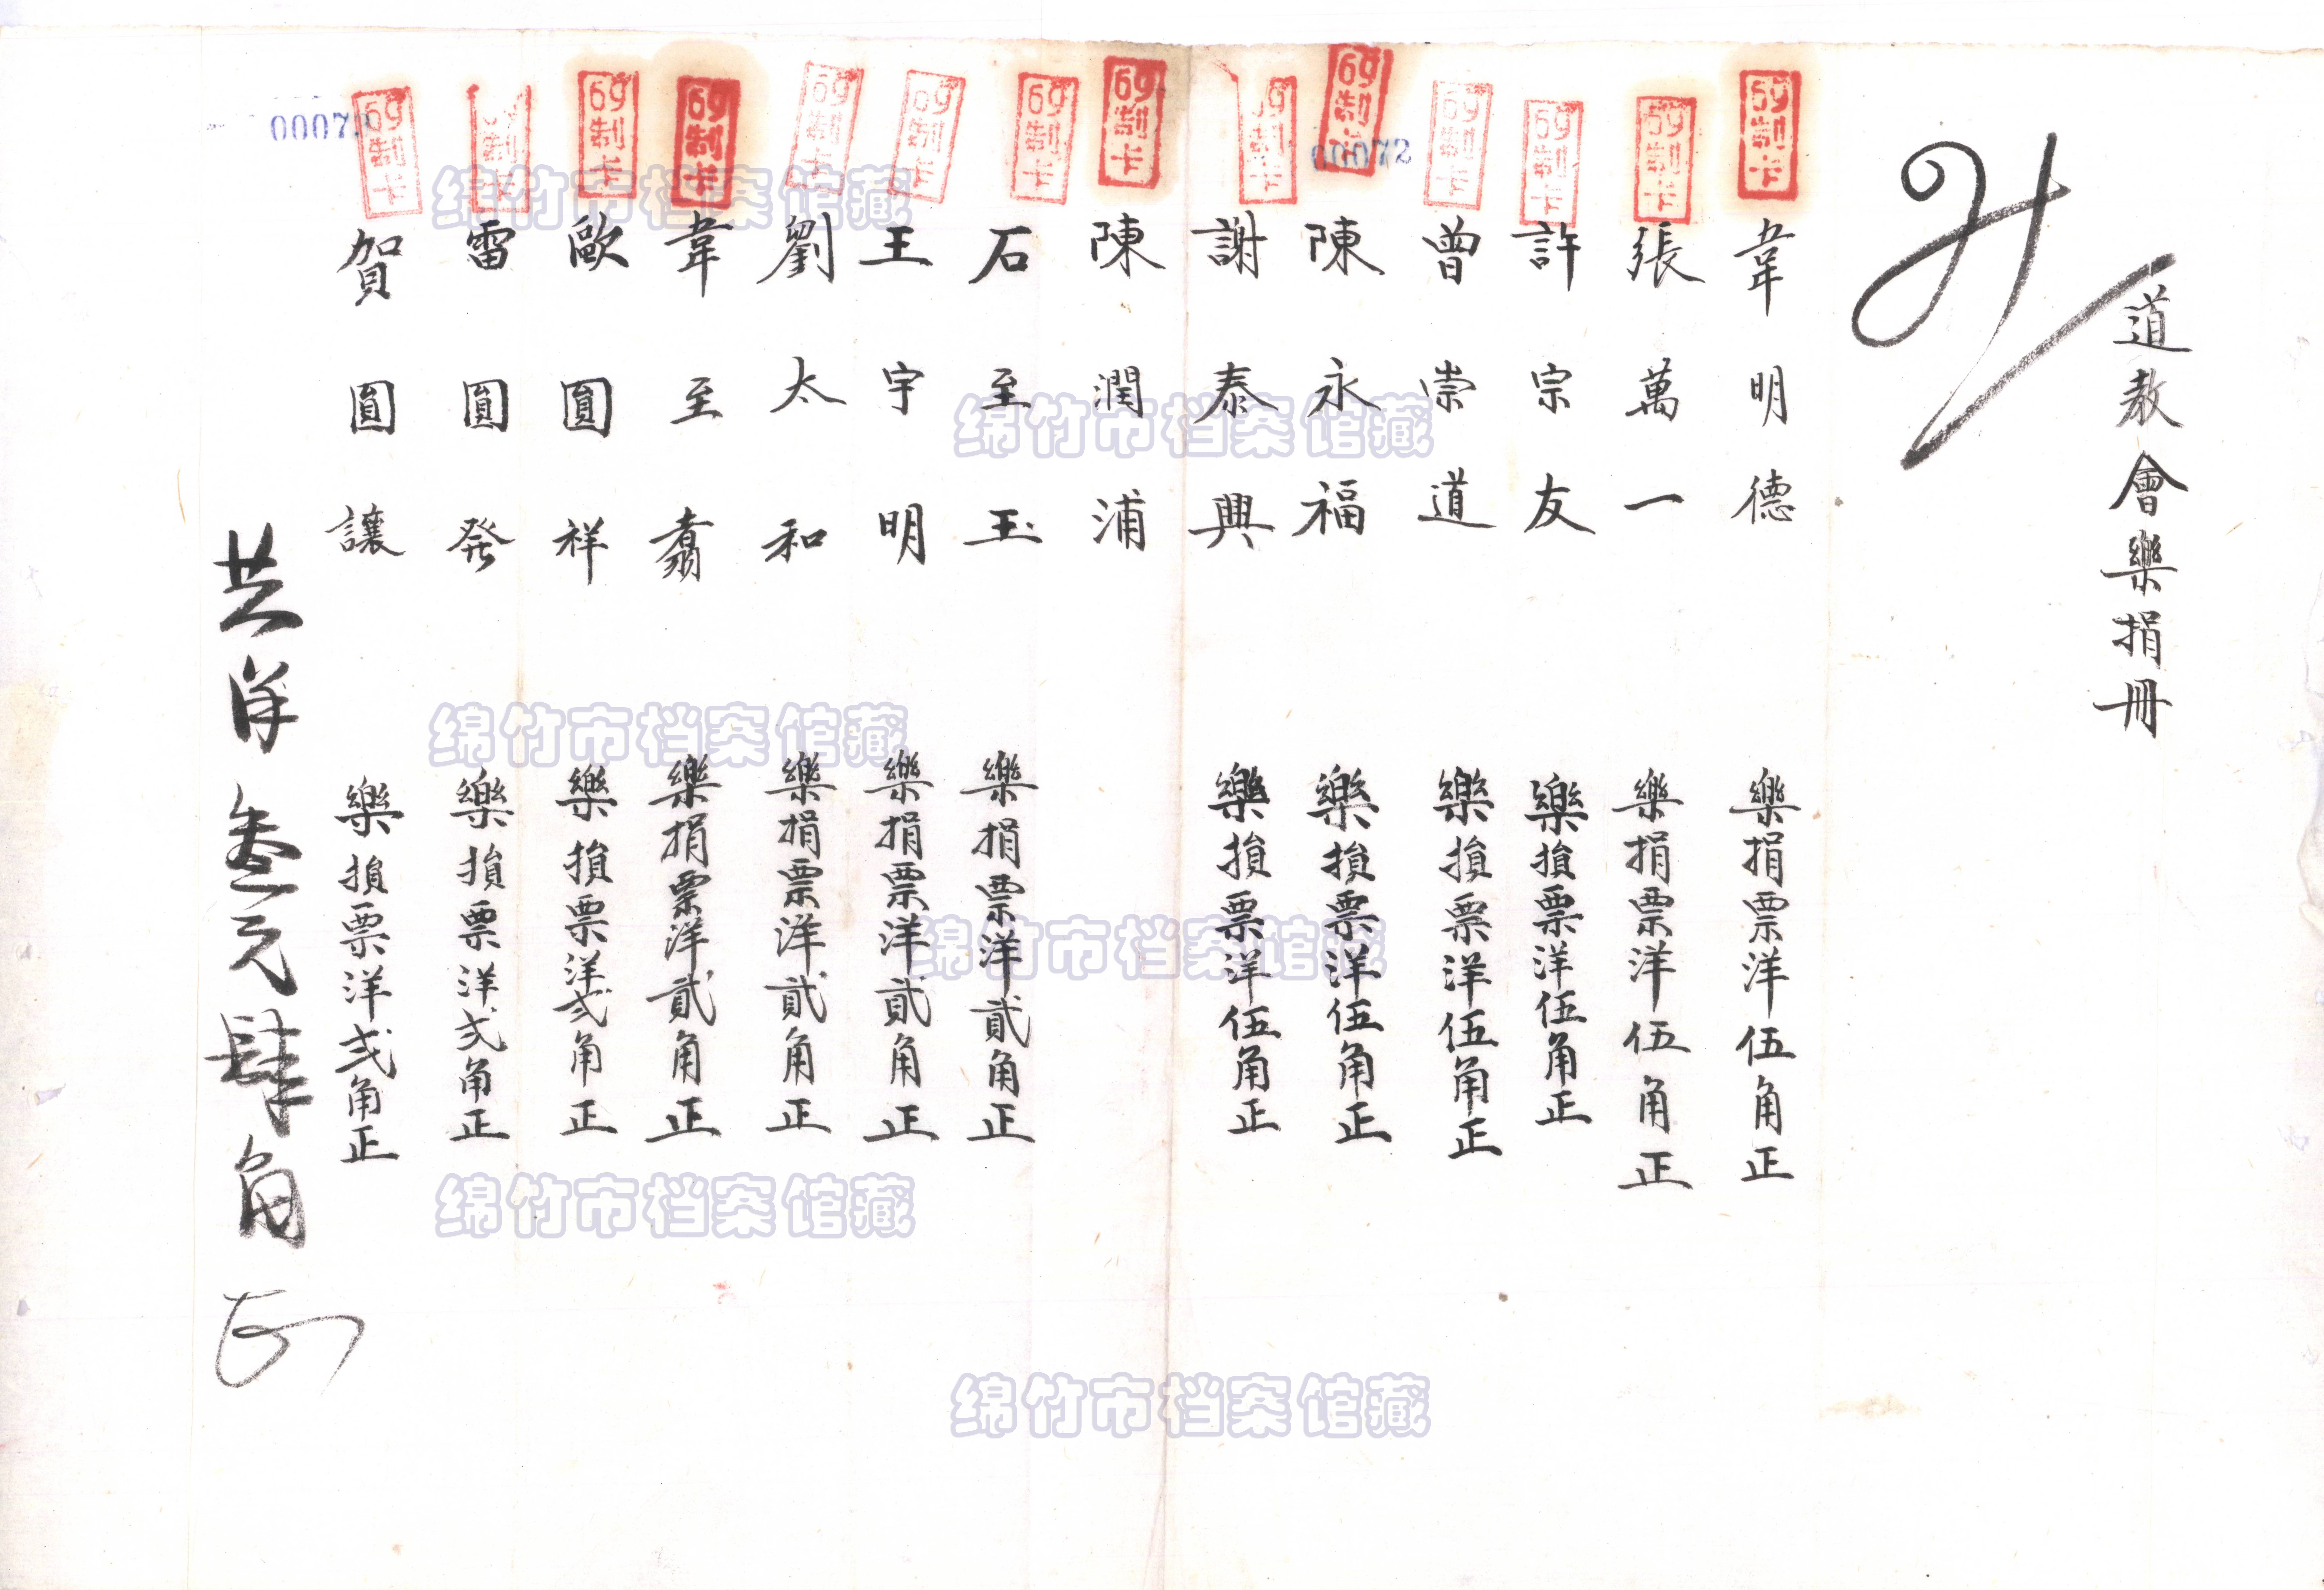 道教會樂捐冊
韋明德 樂捐票洋伍角正
張萬一 樂捐票洋伍角正
許宗友 樂捐票洋伍角正
曾崇道 樂捐票洋伍角正
陳永福 樂捐票洋伍角正
謝泰興 樂捐票洋伍角正
陳潤浦
石至玉 樂捐票洋貳角正
王宇明 樂捐票洋貳角正
劉太和 樂捐票洋貳角正
韋至翥 樂捐票洋貳角正
歐圓祥 樂捐票洋弍角正
雷圓発 樂捐票洋弍角正
賀圓讓 樂捐票洋弍角正
共洋叁元肆角
69制卡
69制卡
69制卡
69制卡
69制卡
69制卡
69制卡
69制卡
69制卡
69制卡
69制卡
69制卡
制卡
69制卡
00072
绵竹市档案馆藏
绵竹市档案馆藏
绵竹市档案馆藏
绵竹市档案馆藏
绵竹市档案馆藏
绵竹市档案馆藏